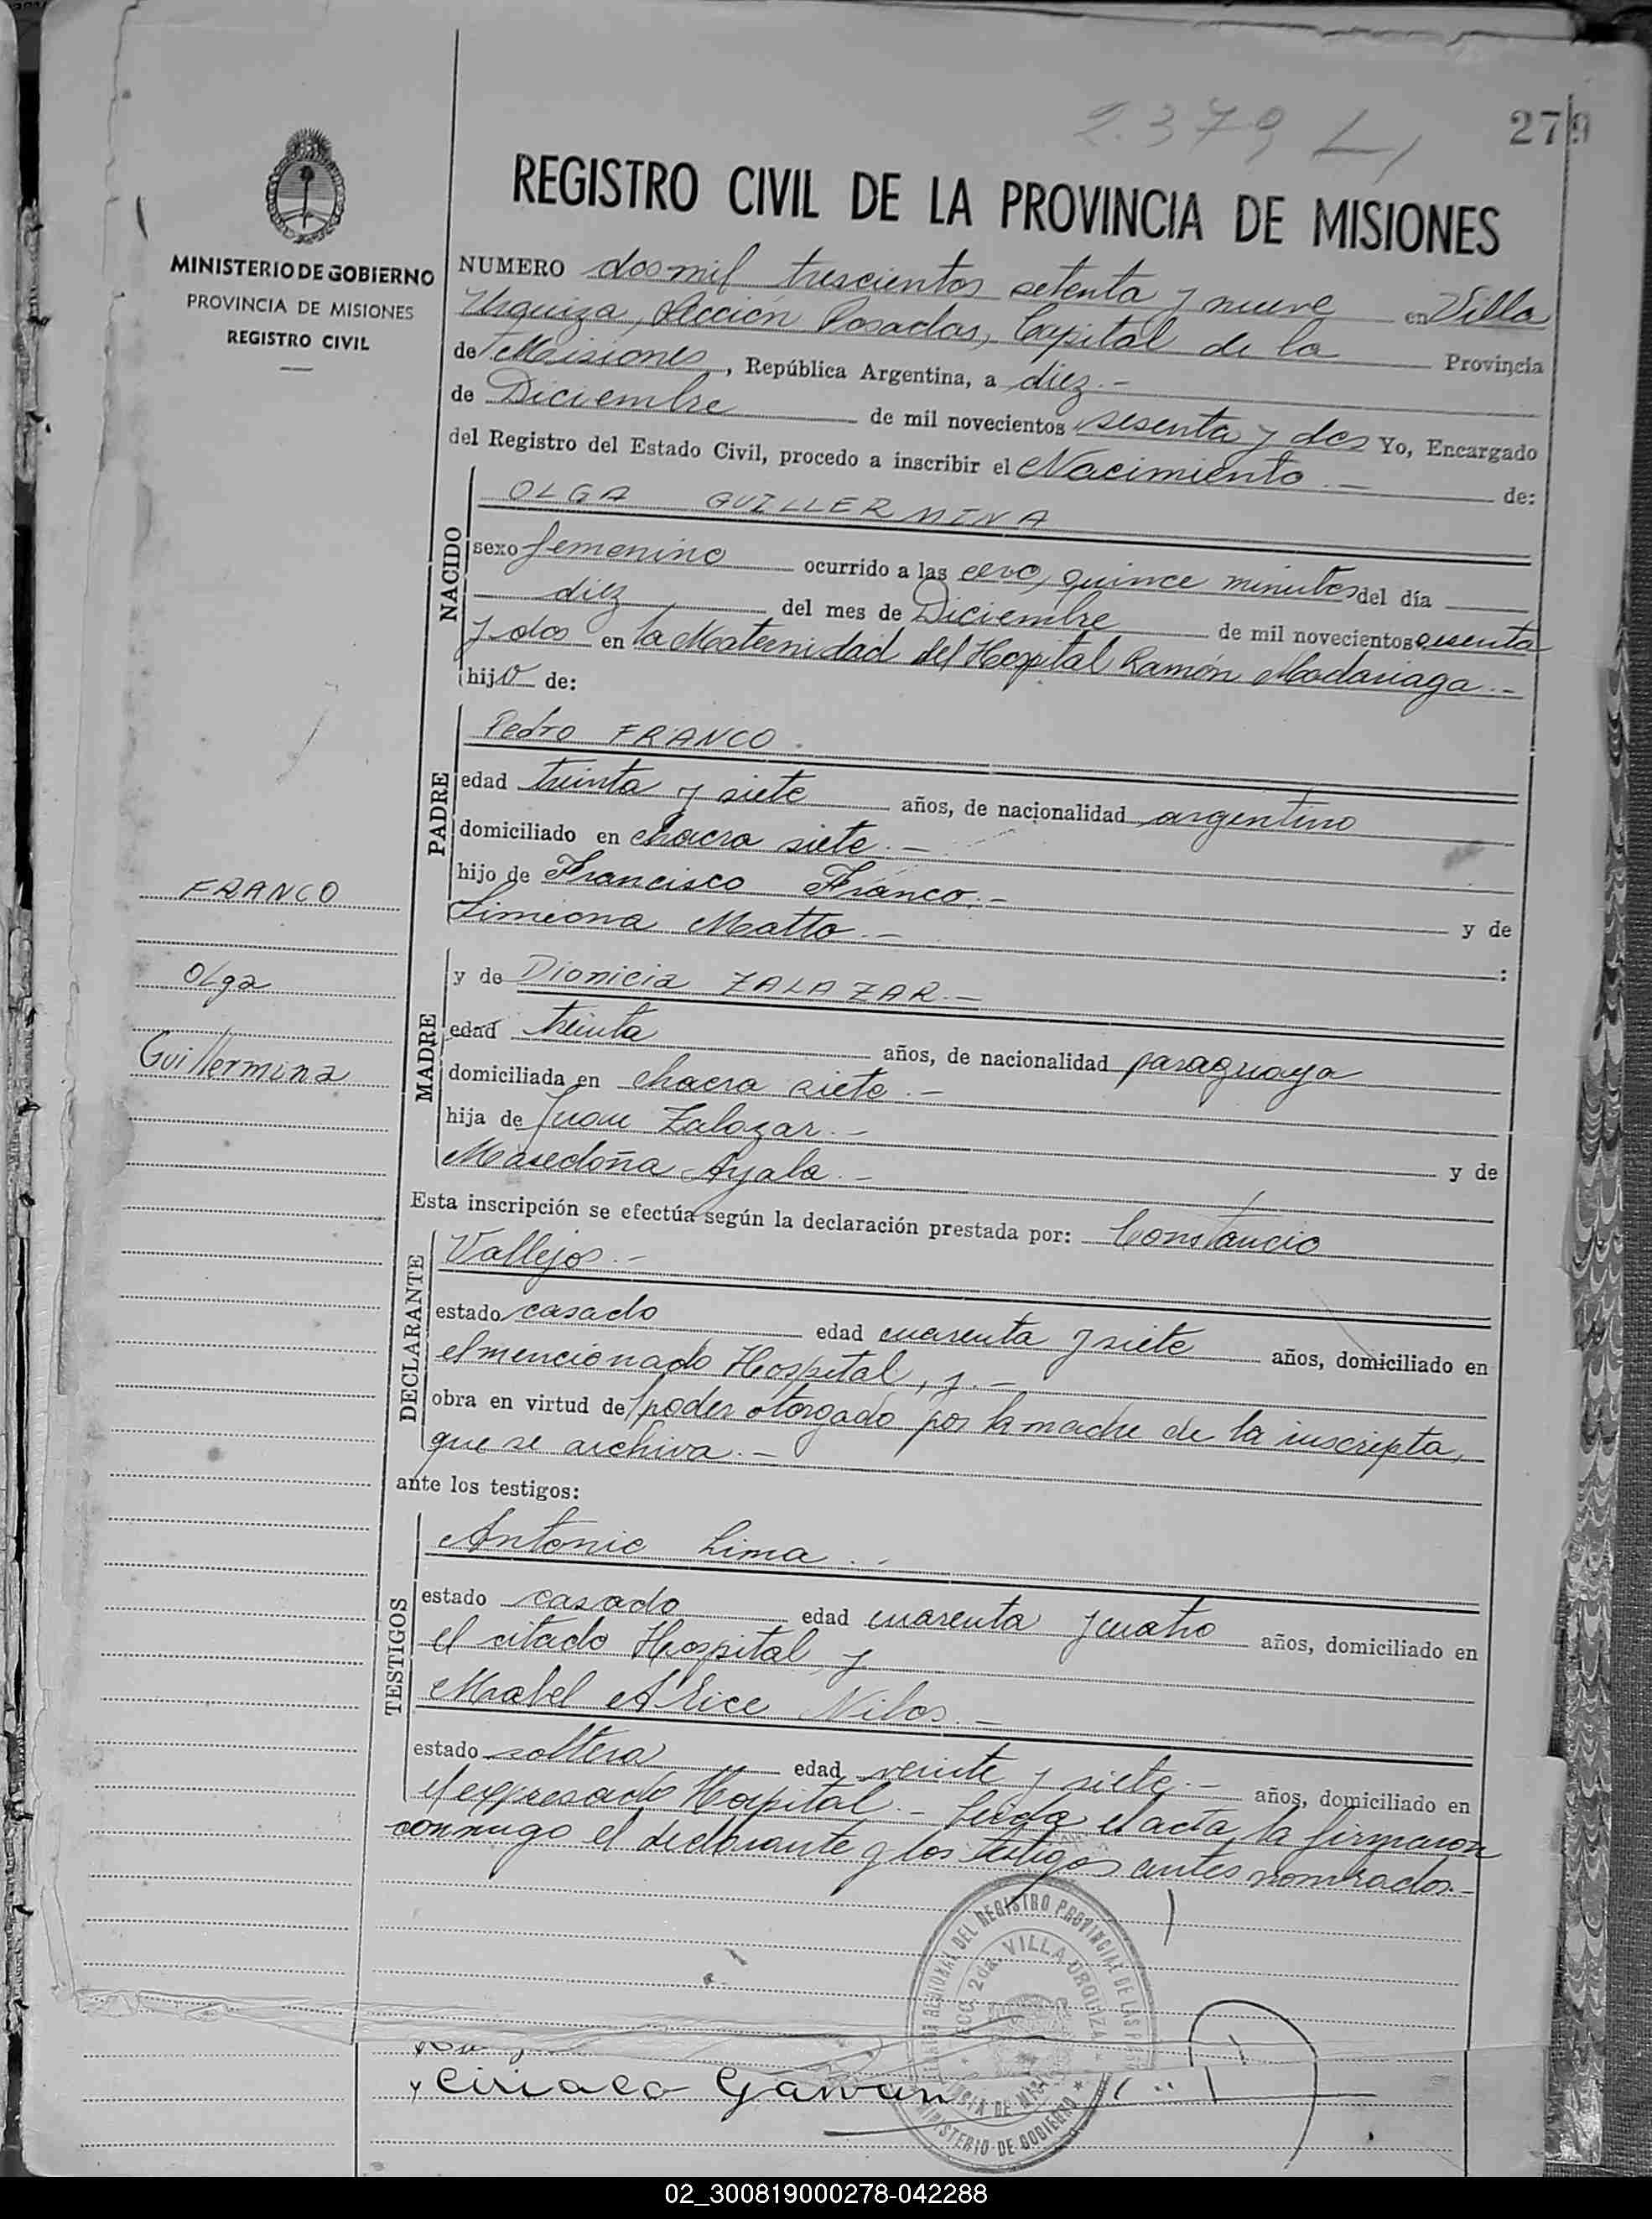 2.379 L
279
REGISTRO CIVIL DE LA PROVINCIA DE MISIONES
MINISTERIO DE GOBIERNO
PROVINCIA DE MISIONES
REGISTRO CIVIL
NUMERO dos mil trescientos setenta y nueve en Villa
Urquiza, Sección Posadas, Capital de la Provincia
de Misiones, República Argentina, a diez.-
de Diciembre de mil novecientos sesenta y dos Yo, Encargado
del Registro del Estado Civil, procedo a inscribir el Nacimiento.- de:
NACIDO
OLGA GUILLERMINA
sexo femenino ocurrido a las cero, quince minutos del día
diez del mes de Diciembre de mil novecientos sesenta
y dos en la Maternidad del Hospital Ramón Madariaga.-
hijo de:
PADRE
Pedro FRANCO.
edad treinta y siete años, de nacionalidad argentino
domiciliado en chacra siete.-
hijo de Francisco Franco.-
y de
Simeona Matto.- :
FRANCO
Olga
Guillermina
MADRE
y de Dionicia ZALAZAR.-
edad treinta años, de nacionalidad paraguaya
domiciliada en chacra siete.-
hija de Juan Zalazar.-
y de
Masedoña Ayala.-
Esta inscripción se efectúa según la declaración prestada por: Constancio
DECLARANTE
Vallejos.-
estado casado edad cuarenta y siete años, domiciliado en
el mencionado Hospital, y.-
obra en virtud de poder otorgado por la madre de la inscripta,
que se archiva.-
ante los testigos:
TESTIGOS
Antonio Lima.-
estado casado edad cuarenta y cuatro años, domiciliado en
el citado Hospital, y
Mabel Alice Nilos.-
estado soltera edad veinte y siete.- años, domiciliado en
el expresado Hospital.- Leída el acta, la firmaron
conmigo el declarante y los testigos antes nombrados.-
DEL REGISTRO PROVINCIAL DE LAS
SECC. 2da. VILLA URQUIZA
MINISTERIO DE GOBIERNO
Ciriaco
02_300819000278-042288